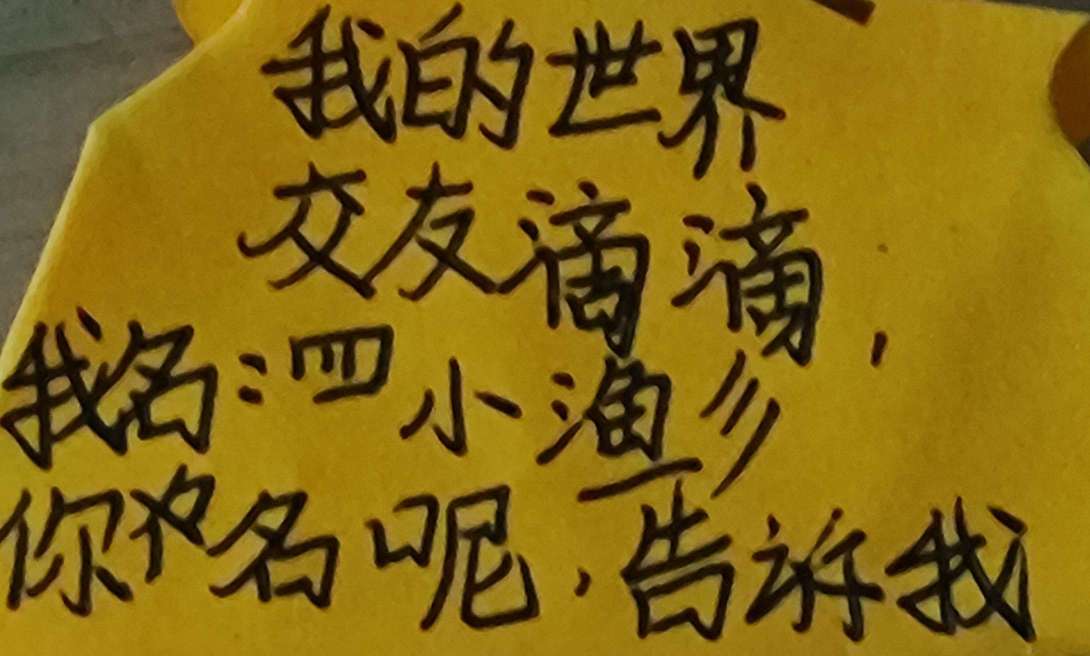 我的世界
交友滴滴,
我名:罒小渔彡
你的名呢,告诉我